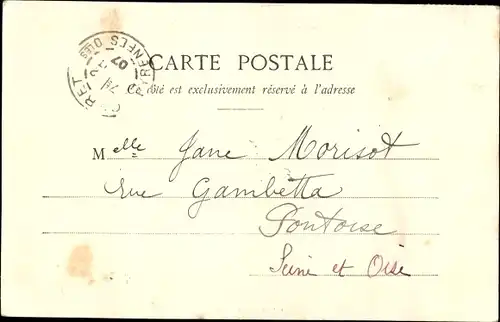 CARTE POSTALE
Ce côté est exclusivement réservé à l'adresse
Melle Jane Morisot
rue Gambetta
Pontoise
Seine et Oise